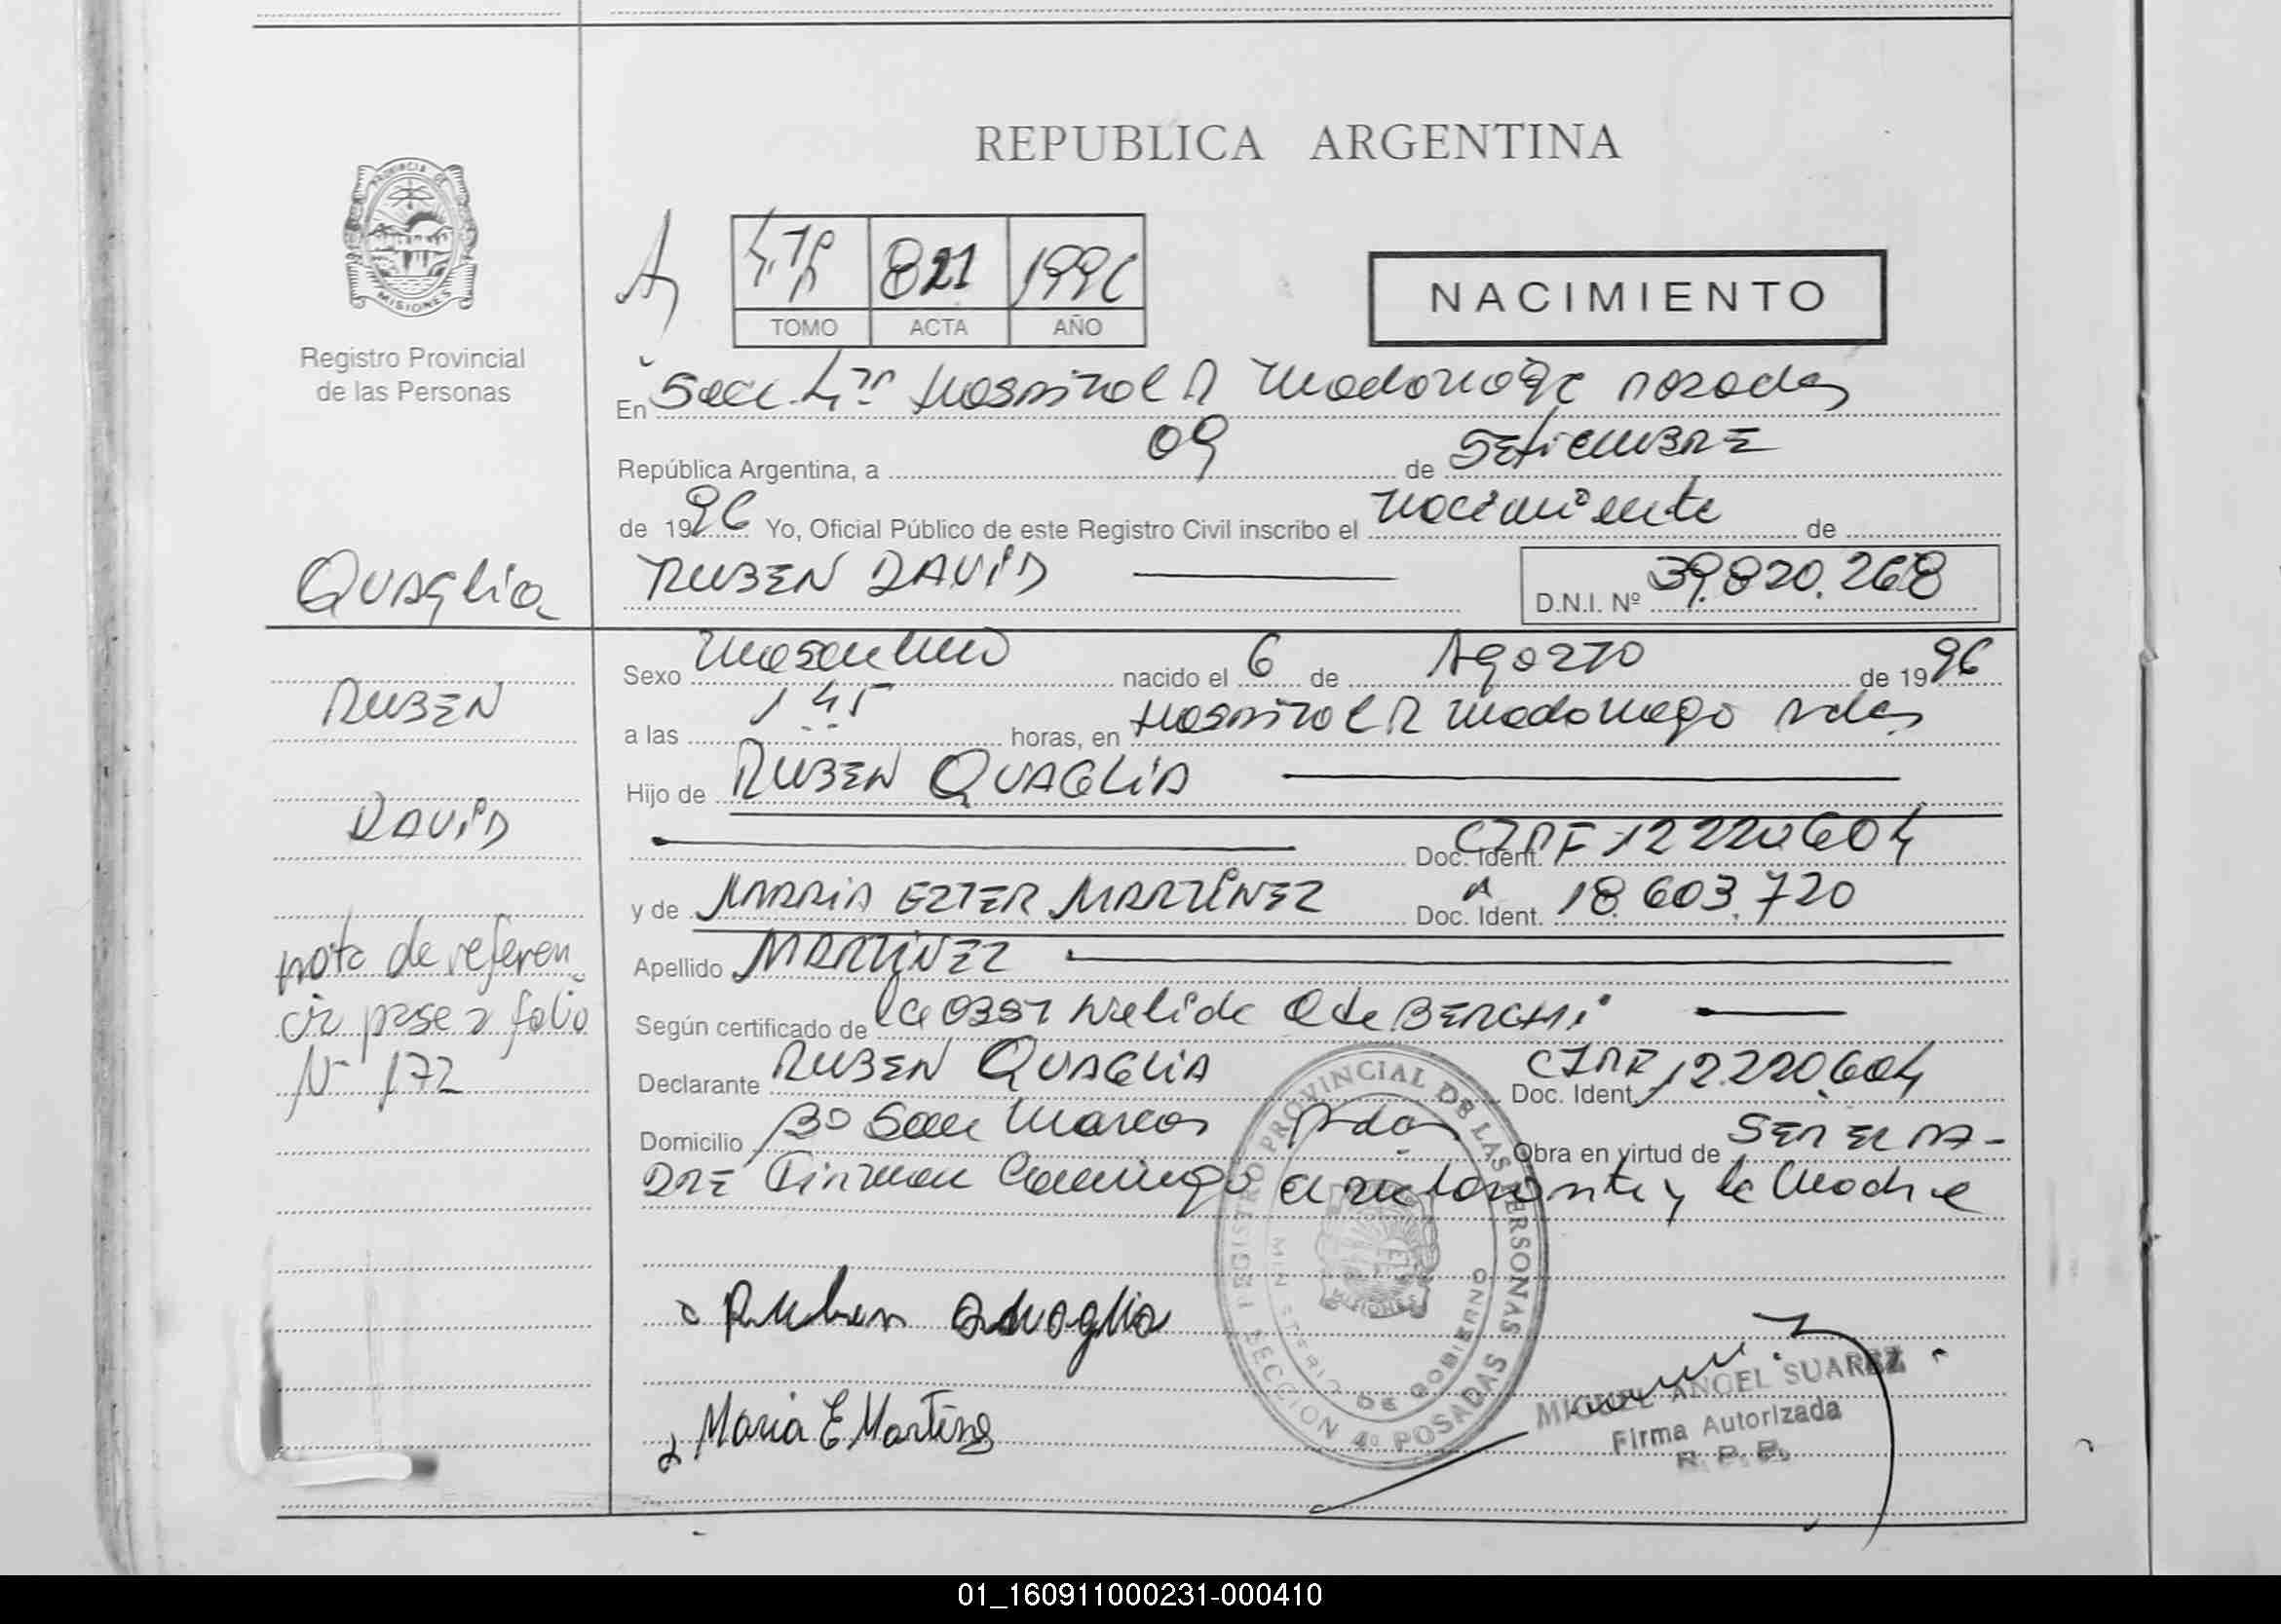 REPUBLICA ARGENTINA
PROVINCIA DE
MISIONES
Registro Provincial
de las Personas
821 1996
TOMO ACTA AÑO
NACIMIENTO
En Secc. Hospital R Madariaga Posadas
República Argentina, a 09 de Setiembre
de 1996 Yo, Oficial Público de este Registro Civil inscribo el Nacimiento de
Quaglia
RUBEN DAVID
D.N.I. Nº 39.820.268
Sexo Masculino nacido el 6 de Agosto de 1996
RUBEN
a las 1 45 horas, en Hospital R Madariaga Pdas
Hijo de RUBEN QUAGLIA
DAVID
Doc. Ident. CIPF 12220604
y de MARIA EZTER MARTINEZ Doc. Ident. 18.603.720
nota de referen
Apellido MARTINEZ
cia pase a folio
Según certificado de la Obst Nelida O de BERCHI
Nº 172
Declarante RUBEN QUAGLIA Doc. Ident. CIPF 12.220.604
Domicilio Bº San Marcos Pdas Obra en virtud de SER EL PA-
DRE Firman Conmigo el declarante y la Madre
REGISTRO PROVINCIAL DE LAS PERSONAS
MINISTERIO DE GOBIERNO
SECCION 4º POSADAS
MISIONES
Ruben Quaglia
Maria E Martines
MIGUEL ANGEL SUAREZ
Firma Autorizada
R. P. P.
01_160911000231-000410